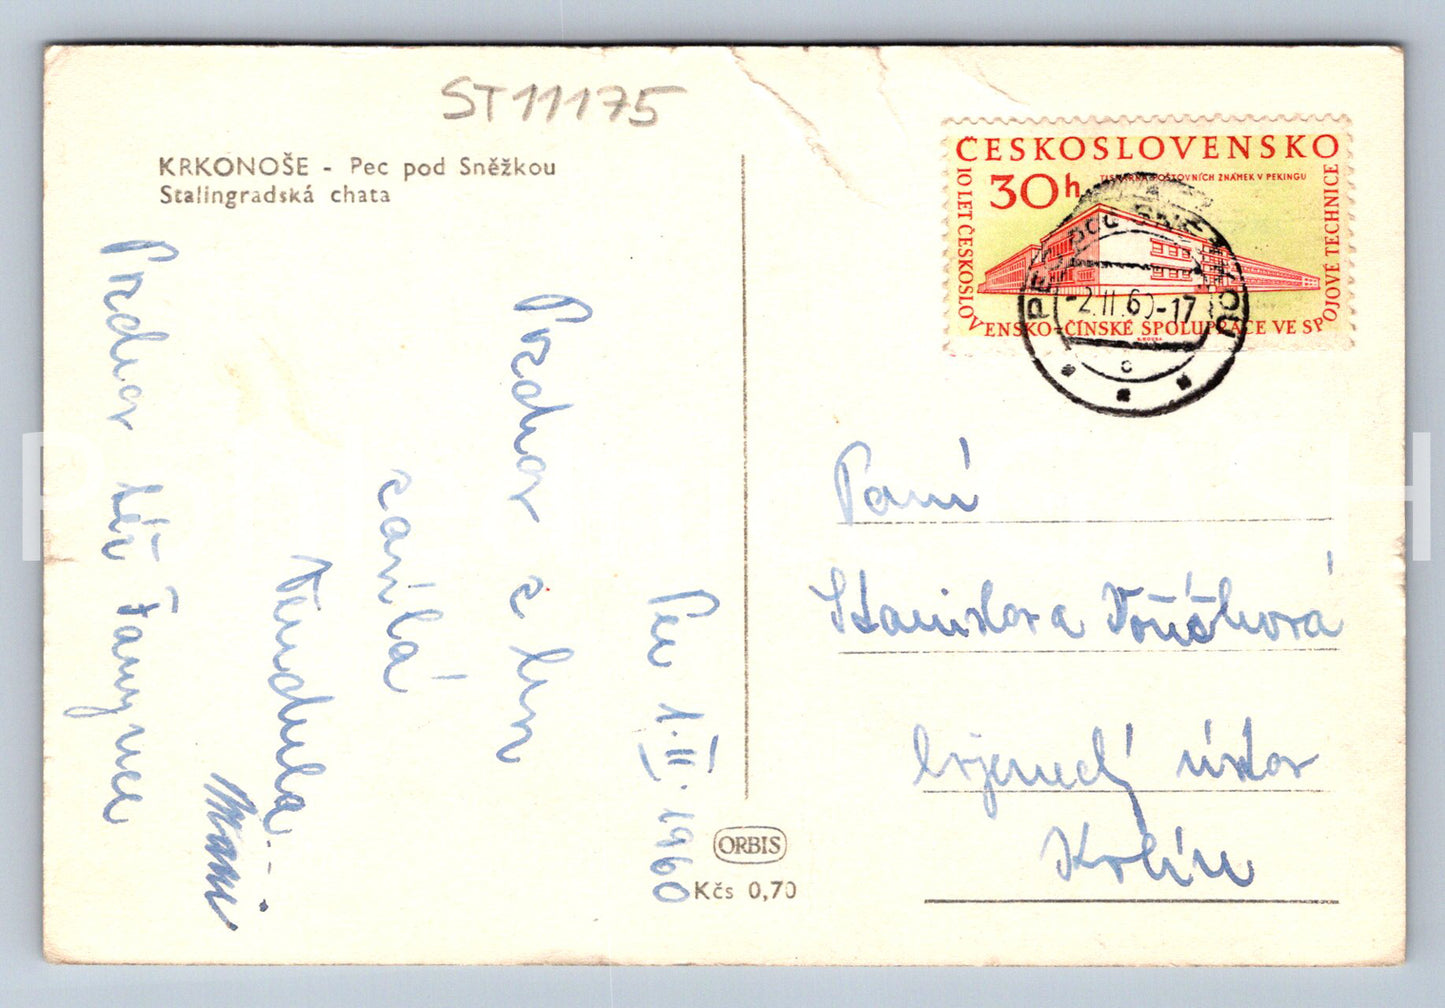 ST 11175
KRKONOŠE - Pec pod Sněžkou
Stalingradská chata
ČESKOSLOVENSKO
TISKÁRNA POŠTOVNÍCH ZNÁMEK V PEKINGU
30h
10 LET ČESKOSLOVENSKO-ČÍNSKÉ SPOLUPRÁCE VE SPOJOVÉ TECHNICE
PEC POD SNĚŽKOU
-2.II.60-17
Pec 1.II.1960
Pozdrav z hor
zasílá
Vendula.
Mani
Pozdrav též
Paní
Stanislava
ústav
Kolín
ORBIS
Kčs 0,70